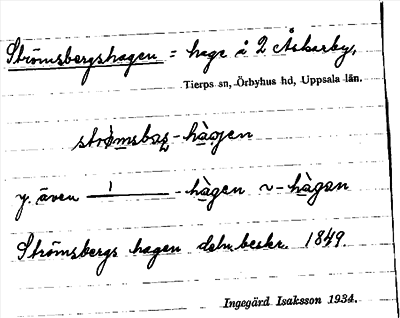 Strömsbergshagen = hage å 2 Åskarby,
Tierps sn, Örbyhus hd, Uppsala län.
strömsbas-hàgen
y. även ——— -hàgen ~ -hàgan
Strömsbergs hagen deln.beskr. 1849.
Ingegärd Isaksson 1934.